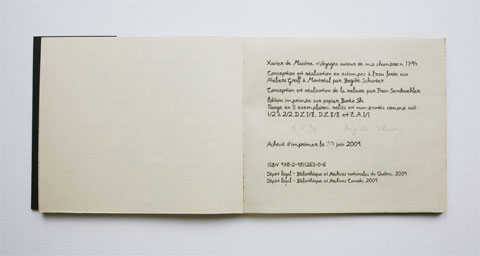 Xavier de Maistre, «Voyages autour de ma chambre», 1794
Conception et réalisation en estampes à l'eau forte aux
Ateliers Graff à Montréal par Brigitte
Conception et réalisation de la reliure par
Édition imprimée sur papier
Tirage en 5 exemplaires, reliés et numérotés comme suit:
1/2 à 2/2, D.Z. I/II, D.Z. II/II et E.A. I/I
Achevé d'imprimer le juin 2009.
ISBN 978-2-981263-0-6
Dépôt légal - Bibliothèque et Archives nationales du Québec, 2009
Dépôt légal - Bibliothèque et Archives Canada, 2009.